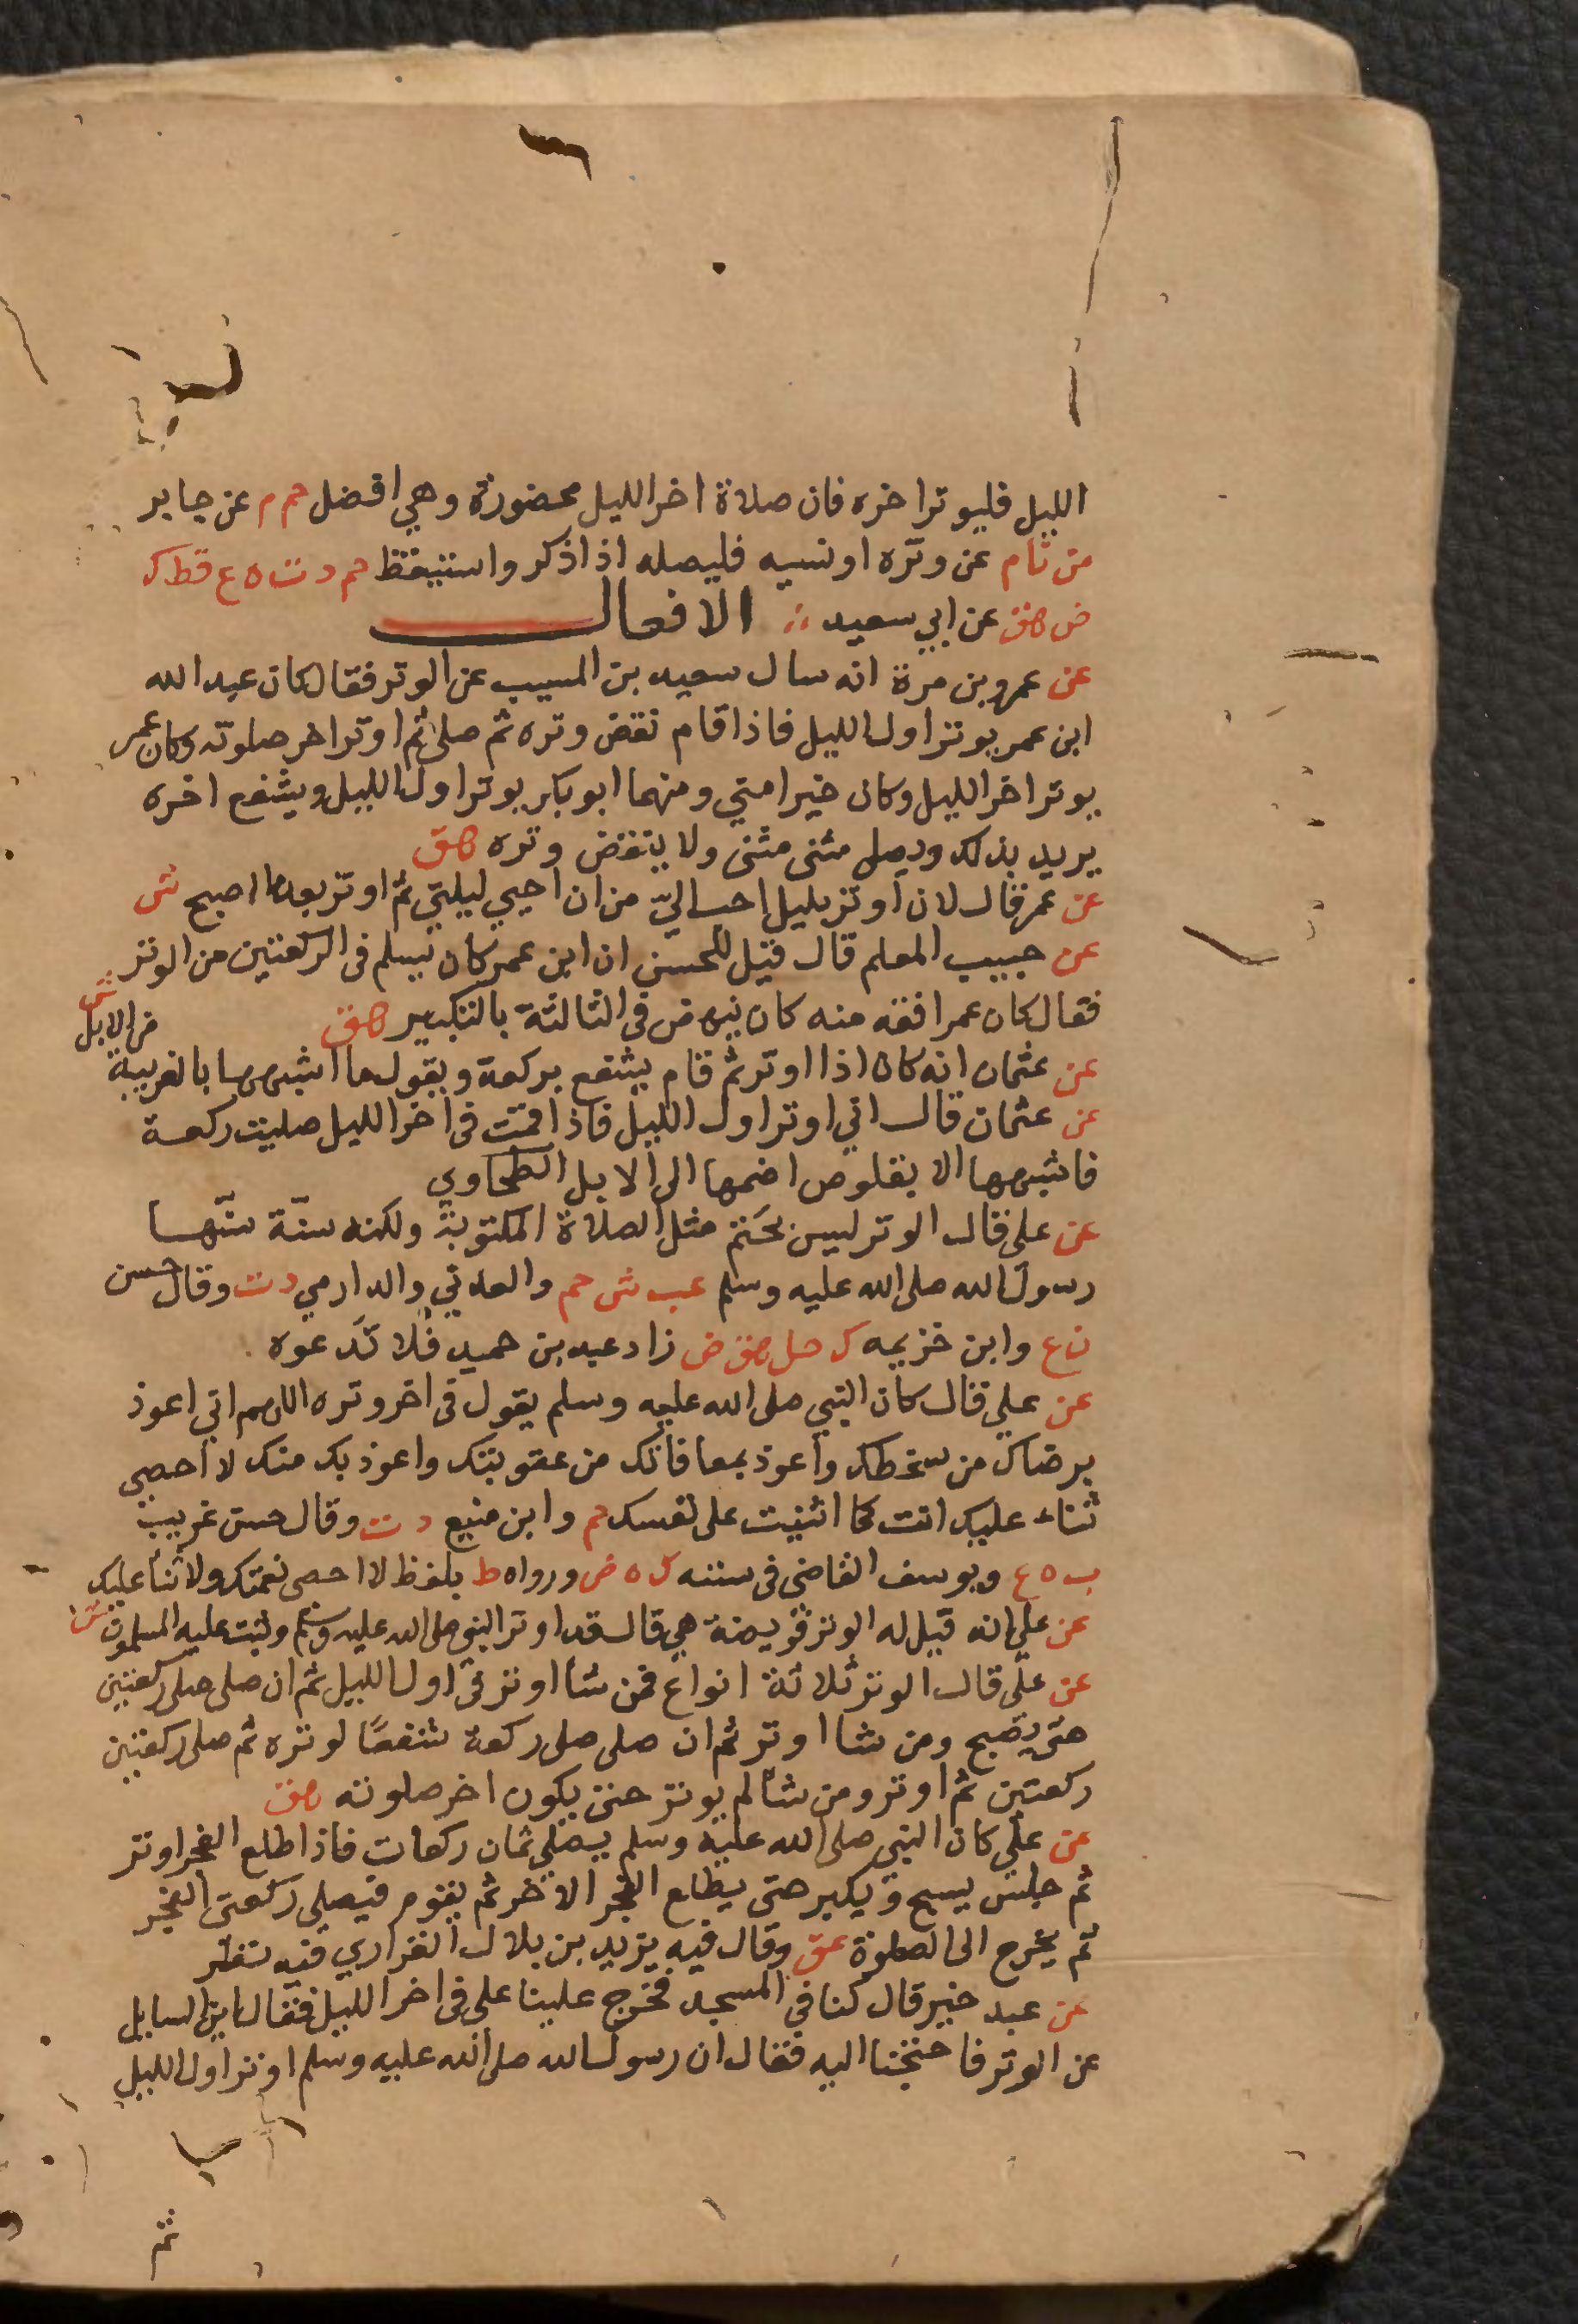 الليل فليوتر اخره فان صلاة اخر الليل محضورة وهي افضل حم م عن جابر
من نام عن وتره او نسيه فليصله اذا ذكر واستيقظ حم د ت ه ع قط ك
ض هق عن ابي سعيد الافعال
عن عمرو بن مرة انه سال سعيد بن المسيب عن الوتر فقال كان عبد الله
ابن عمر يوتر اول الليل فاذا قام نقض وتره ثم صلى ثم اوتر اخر صلوته وكان عمر
يوتر اخر الليل وكان خير امتي ومنهما ابو بكر يوتر اول الليل ويشفع اخره
يريد بذلك ويصل مثنى مثنى ولا ينقض وتره هق
عن عمر قال لان اوتر بليل احب الي من ان احيي ليلتي ثم اوتر بعدما اصبح ش
عن حبيب المعلم قال قيل للحسن ان ابن عمر كان يسلم في الركعتين من الوتر
فقال كان عمر افقه منه كان ينهض في الثالثة بالتكبير هق
عن عثمان انه كان اذا اوتر ثم قام يشفع بركعة ويقول ما اشبهها بالغريبة من الابل ش
عن عثمان قال اني اوتر اول الليل فاذا قمت في اخر الليل صليت ركعة
فاشبهها الا بقلوص اضمها الى الابل الطحاوي
عن علي قال الوتر ليس بحتم مثل الصلاة المكتوبة ولكنه سنة سنها
رسول الله صلى الله عليه وسلم عب ش حم والعدني والدارمي د ت وقال حسن
ن ع وابن خزيمه ك حل هق ض زاد عبد بن حميد فلا تدعوه
عن علي قال كان النبي صلى الله عليه وسلم يقول في اخر وتره اللهم اني اعوذ
برضاك من سخطك واعوذ بمعافاتك من عقوبتك واعوذ بك منك لا احصى
ثناء عليك انت كما اثنيت على نفسك حم وابن منيع د ت وقال حسن غريب
ن ه ع ويوسف القاضى فى سننه ك ه ض ورواه ط بلفظ لا احصى نعمتك ولا ثنأ عليك
عن علي انه قيل له الوتر فريضة هي قال قد اوتر النبي صلى الله عليه وسلم وثبت عليه المسلمون ش
عن علي قال الوتر ثلاثة انواع فمن شأ اوتر في اول الليل ثم ان صلى صلى ركعتين
حتى يصبح ومن شا اوتر ثم ان صلى صلى ركعة شفعًا لوتره ثم صلى ركعتين
ركعتين ثم اوتر ومن شأ لم يوتر حتى يكون اخر صلوته هق
عن علي كان النبي صلى الله عليه وسلم يصلي ثمان ركعات فاذا طلع الفجر اوتر
ثم جلس يسبح ويكبر حتى يطلع الفجر الاخر ثم يقوم فيصلى ركعتى الفجر
ثم يخرج الى الصلوة عق وقال فيه يزيد بن بلال الفزاري فيه نظر
عن عبد خير قال كنا في المسجد فخرج علينا على فى اخر الليل فقال اين السايل
عن الوتر فاجتمعنا اليه فقال ان رسول الله صلى الله عليه وسلم اوتر اول الليل
ثم